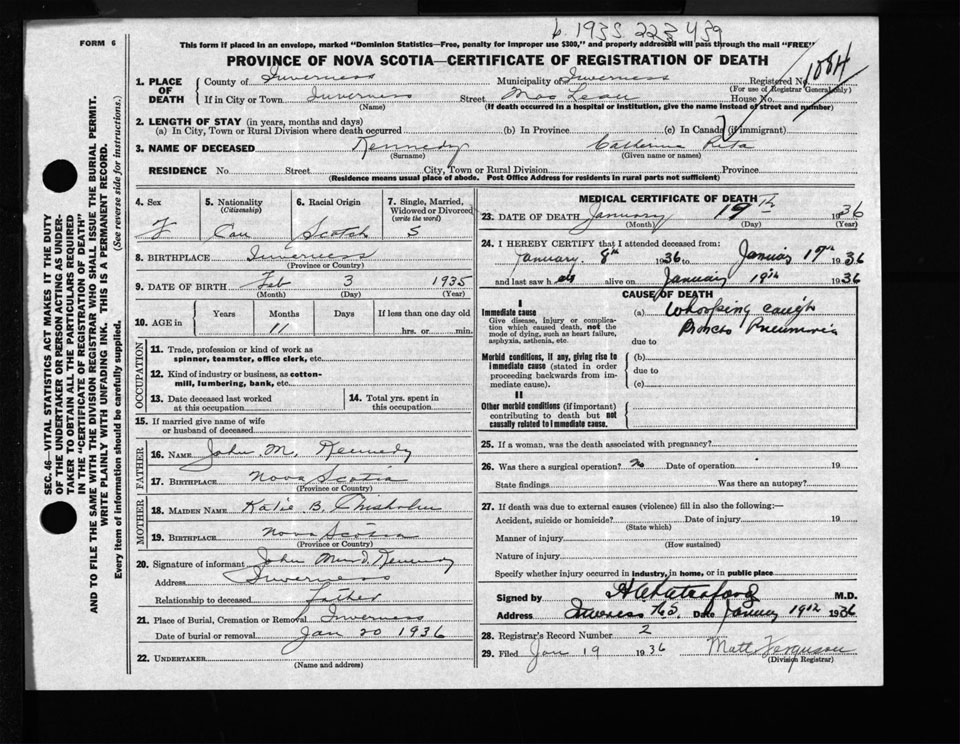 b. 1935 223 439
FORM 6
This form if placed in an envelope, marked "Dominion Statistics—Free, penalty for improper use $300," and properly addressed will pass through the mail "FREE"
PROVINCE OF NOVA SCOTIA—CERTIFICATE OF REGISTRATION OF DEATH
1. PLACE OF DEATH
County of Inverness Municipality of Inverness Registered No. 1884
(For use of Registrar General only)
If in City or Town Inverness Street Mac Lean House No.
(Name) (If death occurred in a hospital or institution, give the name instead of street and number)
2. LENGTH OF STAY (in years, months and days)
(a) In City, Town or Rural Division where death occurred (b) In Province (c) In Canada (if immigrant)
3. NAME OF DECEASED Kennedy Catherine Rita
(Surname) (Given name or names)
RESIDENCE No. Street City, Town or Rural Division Province
(Residence means usual place of abode. Post Office Address for residents in rural parts not sufficient)
4. Sex 5. Nationality (Citizenship) 6. Racial Origin 7. Single, Married, Widowed or Divorced (write the word)
F Can Scotch S
8. BIRTHPLACE Inverness
(Province or Country)
9. DATE OF BIRTH Feb 3 1935
(Month) (Day) (Year)
10. AGE in Years Months Days If less than one day old
11 hrs. or min.
OCCUPATION
11. Trade, profession or kind of work as
spinner, teamster, office clerk, etc.
12. Kind of industry or business, as cotton-
mill, lumbering, bank, etc.
13. Date deceased last worked
at this occupation
14. Total yrs. spent in
this occupation
15. If married give name of wife
or husband of deceased
FATHER
16. NAME John M. Kennedy
17. BIRTHPLACE Nova Scotia
(Province or Country)
MOTHER
18. MAIDEN NAME Katie B. Chisholm
19. BIRTHPLACE Nova Scotia
(Province or Country)
20. Signature of informant John Kennedy
Address Inverness
Relationship to deceased Father
21. Place of Burial, Cremation or Removal Inverness
Date of burial or removal Jan 20 1936
22. UNDERTAKER
(Name and address)
MEDICAL CERTIFICATE OF DEATH
23. DATE OF DEATH January 19th 1936
(Month) (Day) (Year)
24. I HEREBY CERTIFY that I attended deceased from:
January 8th 1936 to January 19th 1936
and last saw h er alive on January 19th 1936
CAUSE OF DEATH
I
Immediate cause
Give disease, injury or complica-
tion which caused death, not the
mode of dying, such as heart failure,
asphyxia, asthenia, etc.
(a) Whooping cough
Broncho Pneumonia
due to
Morbid conditions, if any, giving rise to
immediate cause (stated in order
proceeding backwards from im-
mediate cause).
(b)
due to
(c)
II
Other morbid conditions (if important)
contributing to death but not
causally related to immediate cause.
25. If a woman, was the death associated with pregnancy?
26. Was there a surgical operation? no Date of operation 19
State findings Was there an autopsy?
27. If death was due to external causes (violence) fill in also the following:—
Accident, suicide or homicide? Date of injury 19
(State which)
Manner of injury
(How sustained)
Nature of injury
Specify whether injury occurred in industry, in home, or in public place
Signed by M.D.
Address Inverness N.S. Date January 19th 1936
28. Registrar's Record Number 2
29. Filed Jan 19 1936 Matt Ferguson
(Division Registrar)
SEC. 46—VITAL STATISTICS ACT MAKES IT THE DUTY
OF THE UNDERTAKER OR PERSON ACTING AS UNDER-
TAKER TO OBTAIN ALL THE PARTICULARS REQUIRED
IN THE "CERTIFICATE OF REGISTRATION OF DEATH"
AND TO FILE THE SAME WITH THE DIVISION REGISTRAR WHO SHALL ISSUE THE BURIAL PERMIT.
WRITE PLAINLY WITH UNFADING INK. THIS IS A PERMANENT RECORD.
Every item of information should be carefully supplied. (See reverse side for instructions.)